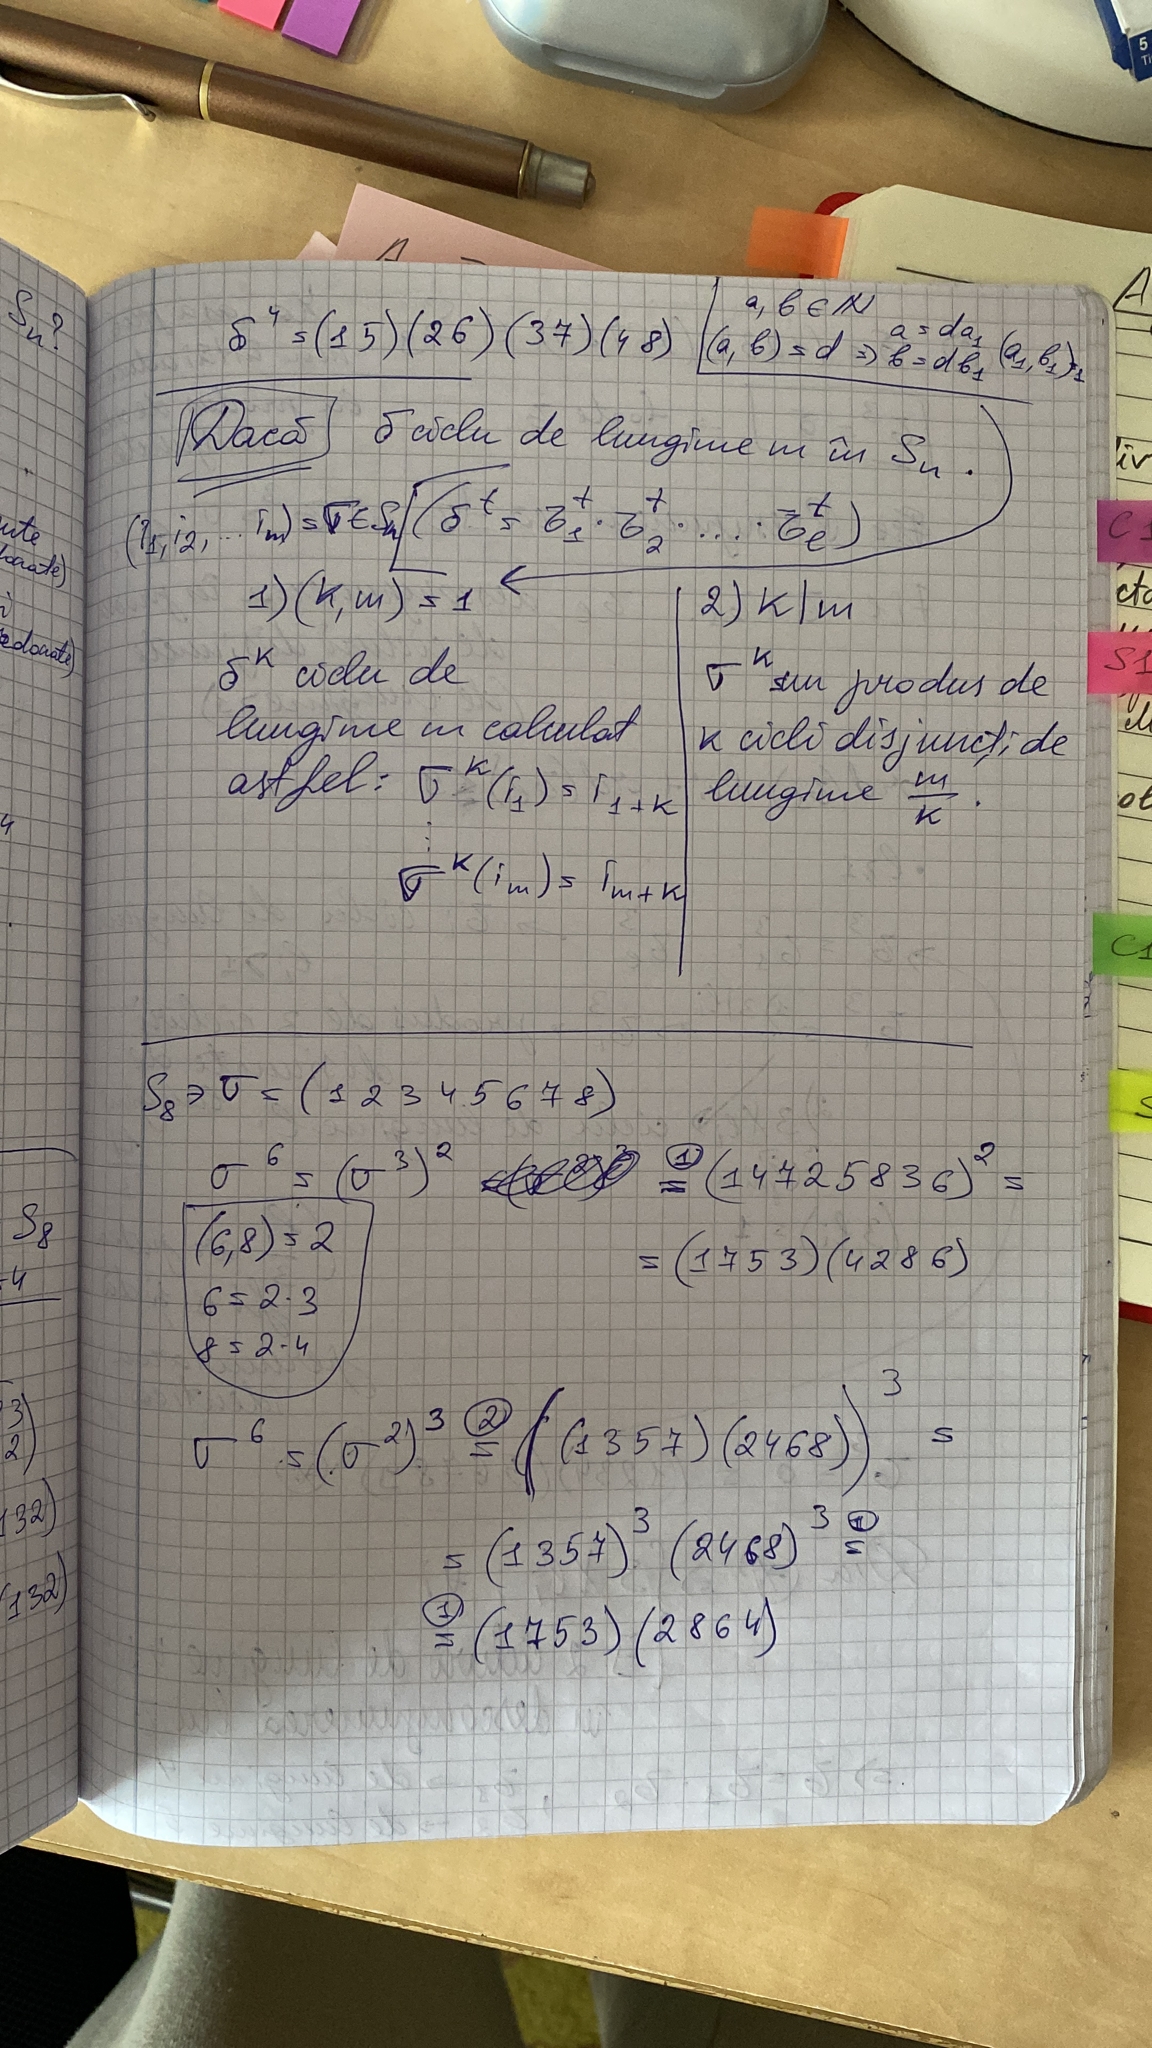 Sn?
σ⁴ = (15)(26)(37)(48)
a, b ∈ N
(a, b) = d ⇒ a = da₁
b = db₁ (a₁, b₁)=1
Dacă σ ciclu de lungime m în Sₙ.
(i₁, i₂, ... iₘ) = σ ∈ Sₙ (σᵗ = τ₁ᵗ · τ₂ᵗ · .... · τₑᵗ)
1) (k, m) = 1
σᵏ ciclu de
lungime m calculat
astfel: σᵏ(i₁) = i₁₊ₖ
⋮
σᵏ(iₘ) = iₘ₊ₖ
2) k | m
σᵏ un produs de
k cicli disjuncți de
lungime m/k .
S₈ ∋ σ = (1 2 3 4 5 6 7 8)
σ⁶ = (σ³)² ①= (14725836)² =
= (1753)(4286)
(6,8) = 2
6 = 2·3
8 = 2·4
σ⁶ = (σ²)³ ②= ((1357)(2468))³ =
= (1357)³ (2468)³ ①=
①= (1753)(2864)
S₈
132)
(132)
A
C1
S1
C1
S
5